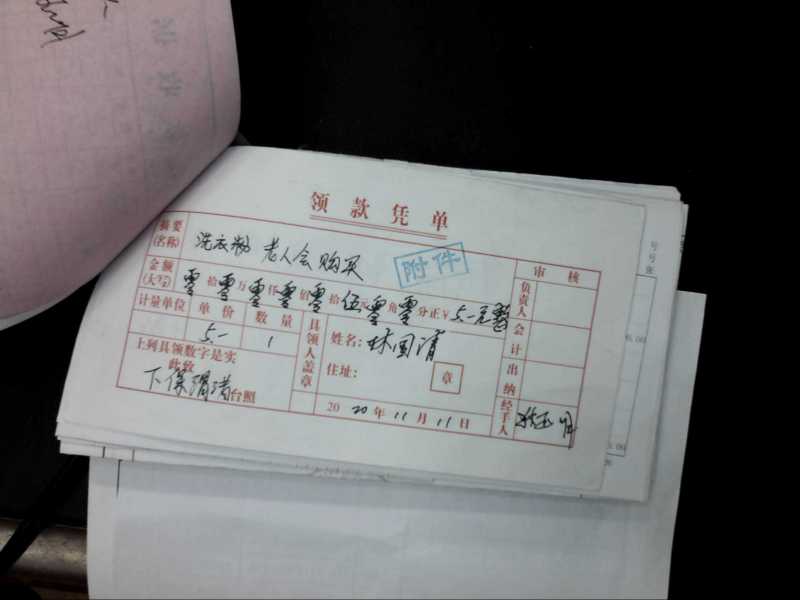 领款凭单
摘要(名称) 洗衣粉 老人会购买
附件
审核
金额(大写) 零拾零万零仟零佰零拾伍元零角零分正¥ 5.-元整
负责人
计量单位 单价 数量
5.- 1
会计
具领人盖章
姓名: 林国清
住址:
章
上列具领数字是实
此致
下保 台照
出纳
2020年11月11日
经手人